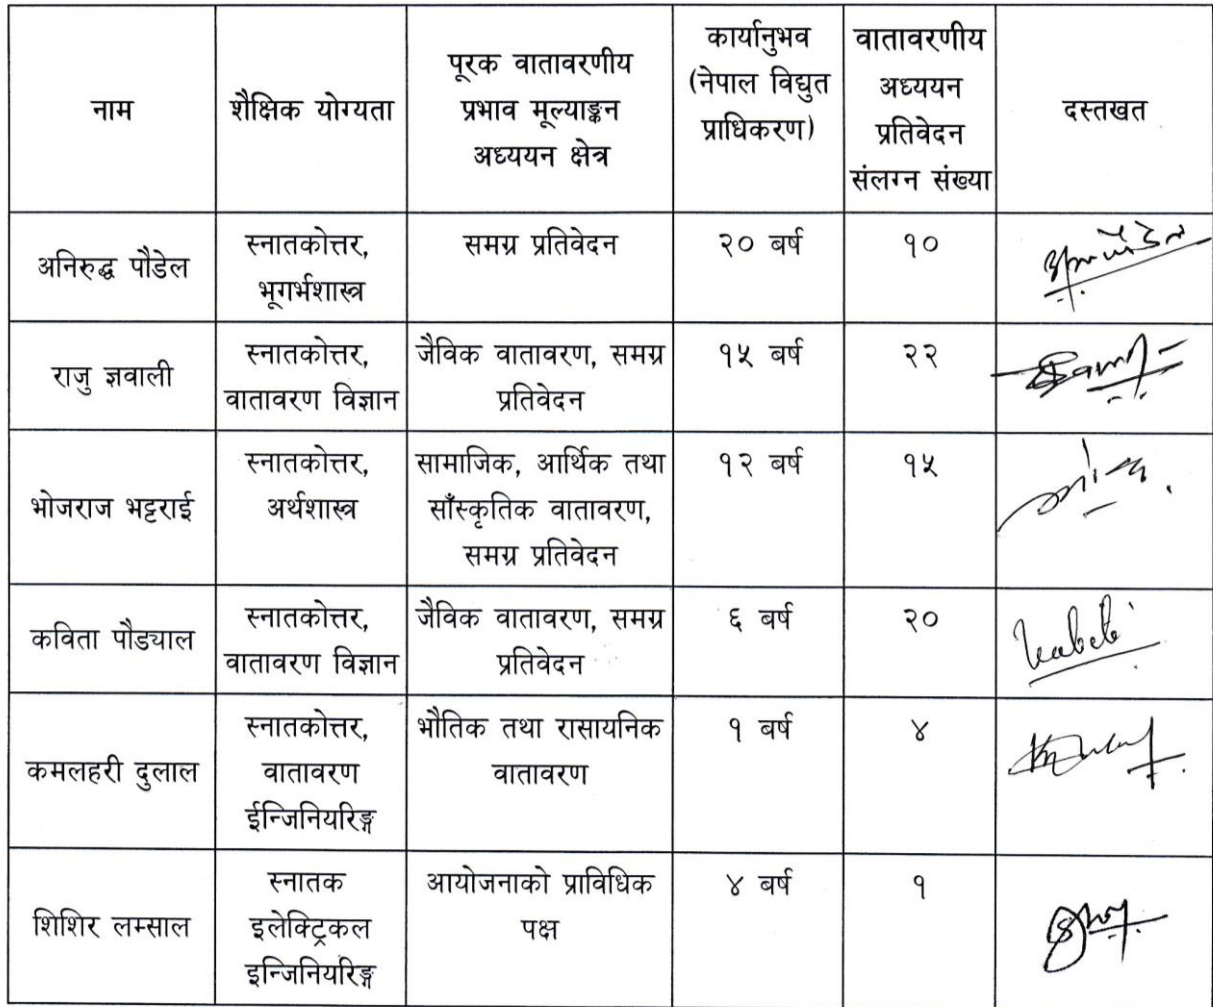 नाम
शैक्षिक योग्यता
पूरक वातावरणीय
प्रभाव मूल्याङ्कन
अध्ययन क्षेत्र
कार्यानुभव
(नेपाल विद्युत
प्राधिकरण)
वातावरणीय
अध्ययन
प्रतिवेदन
संलग्न संख्या
दस्तखत
अनिरुद्ध पौडेल
स्नातकोत्तर,
भूगर्भशास्त्र
समग्र प्रतिवेदन
२० बर्ष
१०
राजु ज्ञवाली
स्नातकोत्तर,
वातावरण विज्ञान
जैविक वातावरण, समग्र
प्रतिवेदन
१५ बर्ष
२२
भोजराज भट्टराई
स्नातकोत्तर,
अर्थशास्त्र
सामाजिक, आर्थिक तथा
साँस्कृतिक वातावरण,
समग्र प्रतिवेदन
१२ बर्ष
१५
कविता पौड्याल
स्नातकोत्तर,
वातावरण विज्ञान
जैविक वातावरण, समग्र
प्रतिवेदन
६ बर्ष
२०
कमलहरी दुलाल
स्नातकोत्तर,
वातावरण
ईन्जिनियरिङ्ग
भौतिक तथा रासायनिक
वातावरण
१ बर्ष
४
शिशिर लम्साल
स्नातक
इलेक्ट्रिकल
इन्जिनियरिङ्ग
आयोजनाको प्राविधिक
पक्ष
४ बर्ष
१